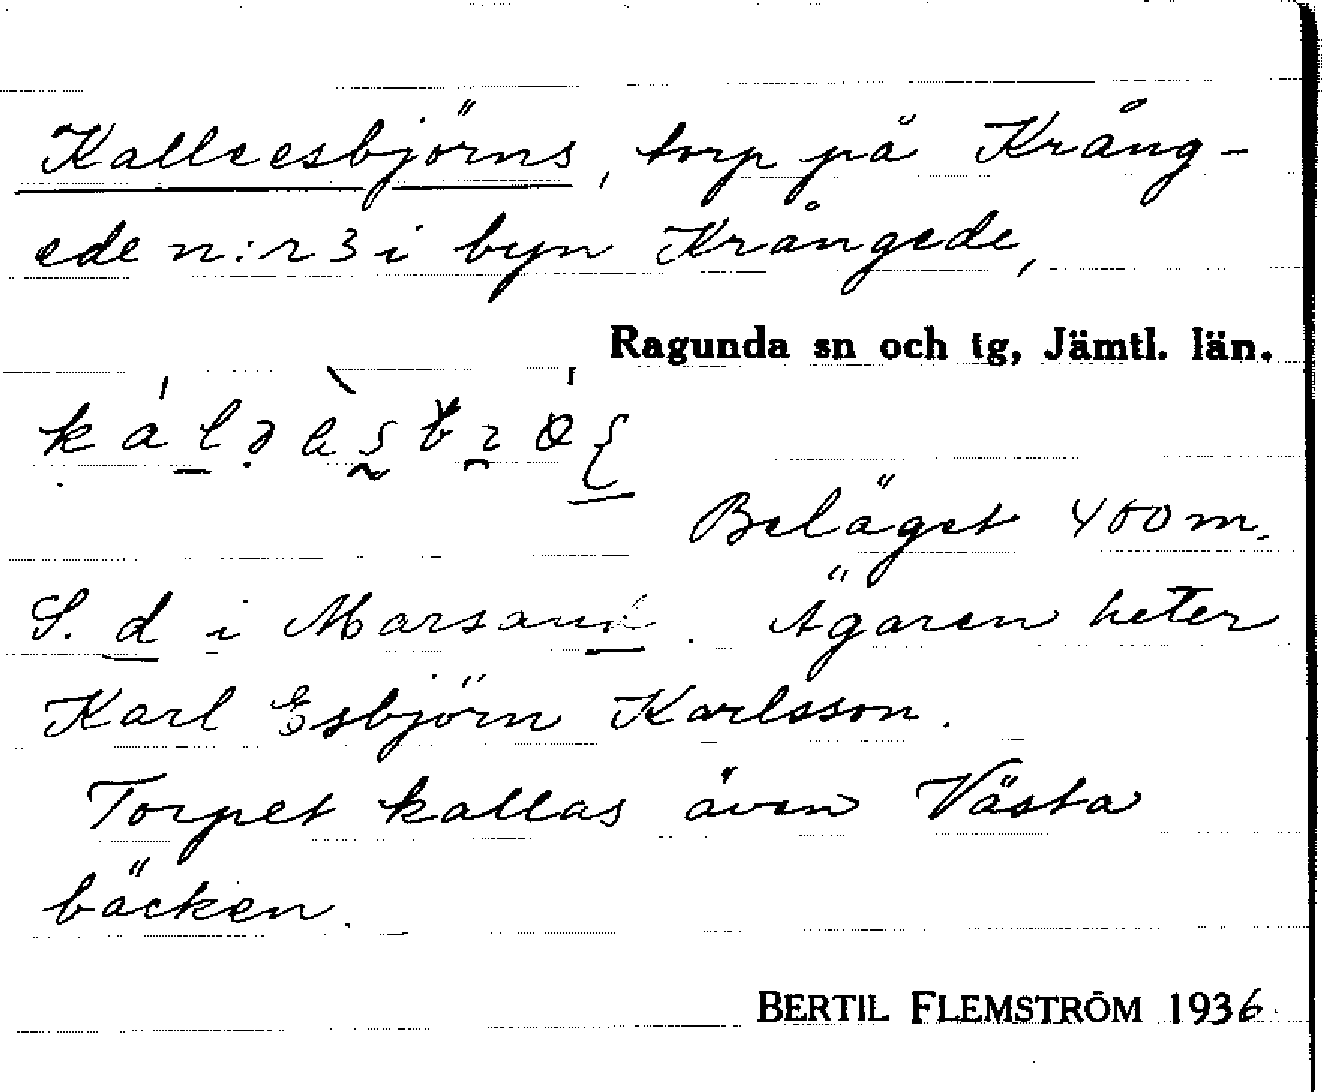 Kalleesbjörns, torp på Krång-
ede n:r 3 i byn Krångede,
Ragunda sn och tg, Jämtl. län.
Beläget 400 m.
S. d i Marsån. Ägaren heter
Karl Esbjörn Karlsson.
Torpet kallas även Västa
bäcken.
BERTIL FLEMSTRÖM 1936